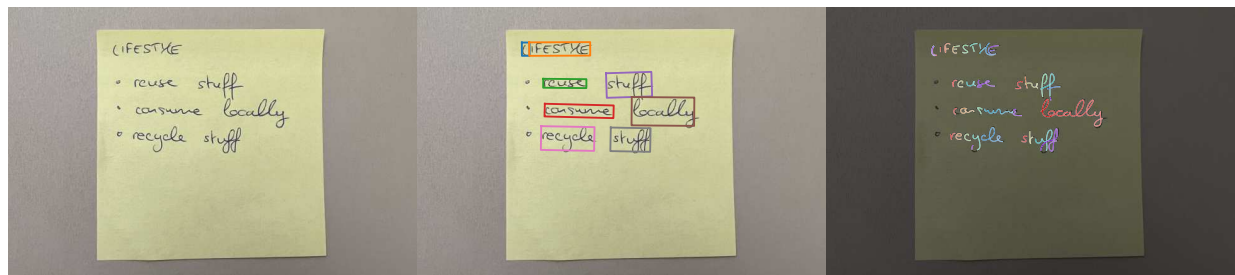 LIFESTYLE
• reuse stuff
• consume locally
• recycle stuff
LIFESTYLE
• reuse stuff
• consume locally
• recycle stuff
LIFESTYLE
• reuse stuff
• consume locally
• recycle stuff